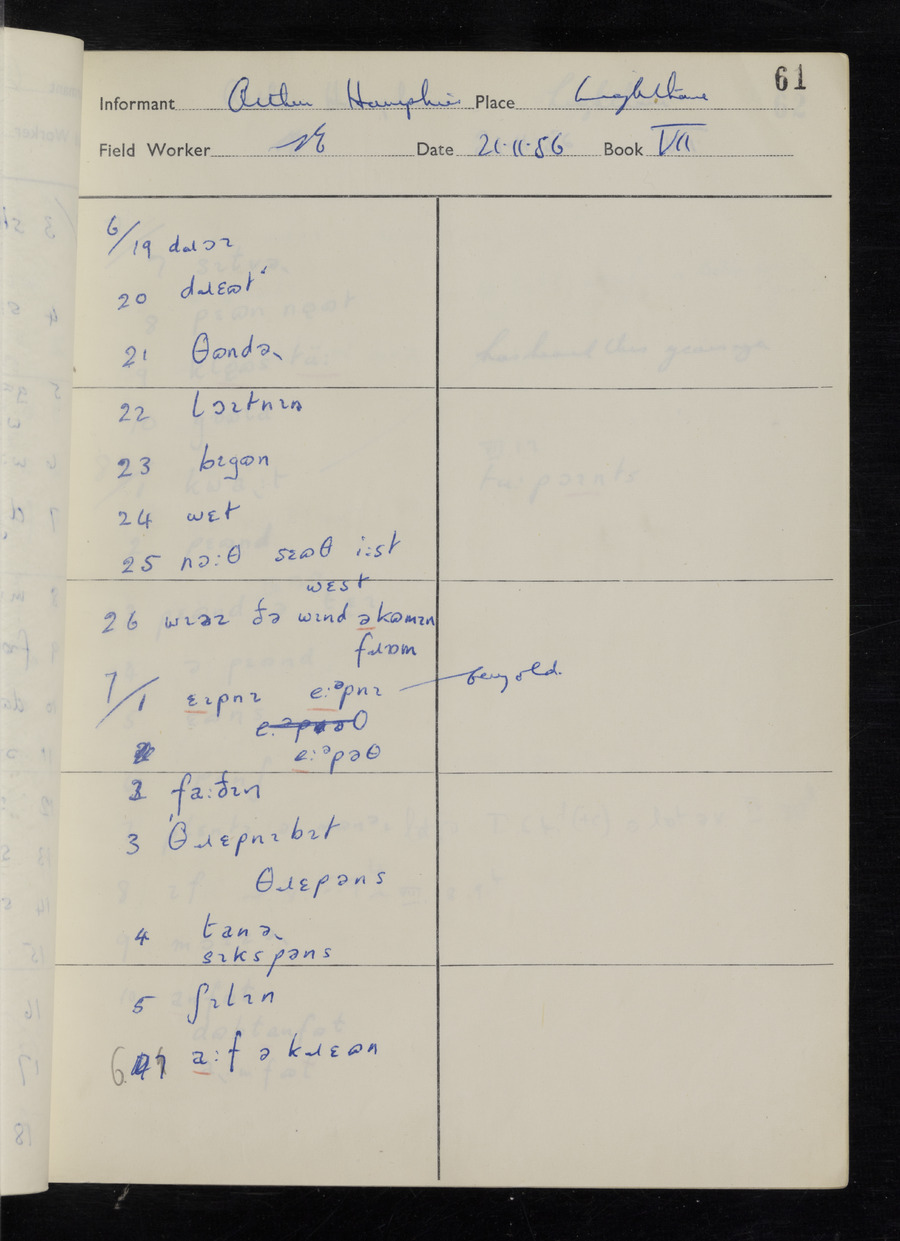 61
Informant Arthur Humphries Place Lighthorne
Field Worker Date 21·11·56 Book VII
6/19 dɹaɪ
20 dɹɛɷt
21 θɷndə˞
22 lɔɪtnɪn
23 bɪgɷn
24 wɛt
25 nɔ:θ sɛɷθ i:st
wɛst
26 wɪəɪ ðə wɪnd əkɷmɪn
fɹɒm
7/1 ɛɪpnɪ e:ᵊpnɪ very old.
e:ᵊpəθ
2 fa:ðɪn
3 'θɹɛpnɪbɪt
θɹɛpəns
4 tanə˞
sɪkspəns
5 ʃɪlɪn
6 a:f ə kɹɛɷn